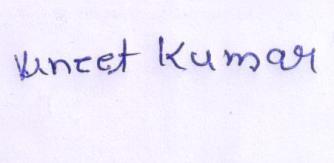 Vineet Kumar